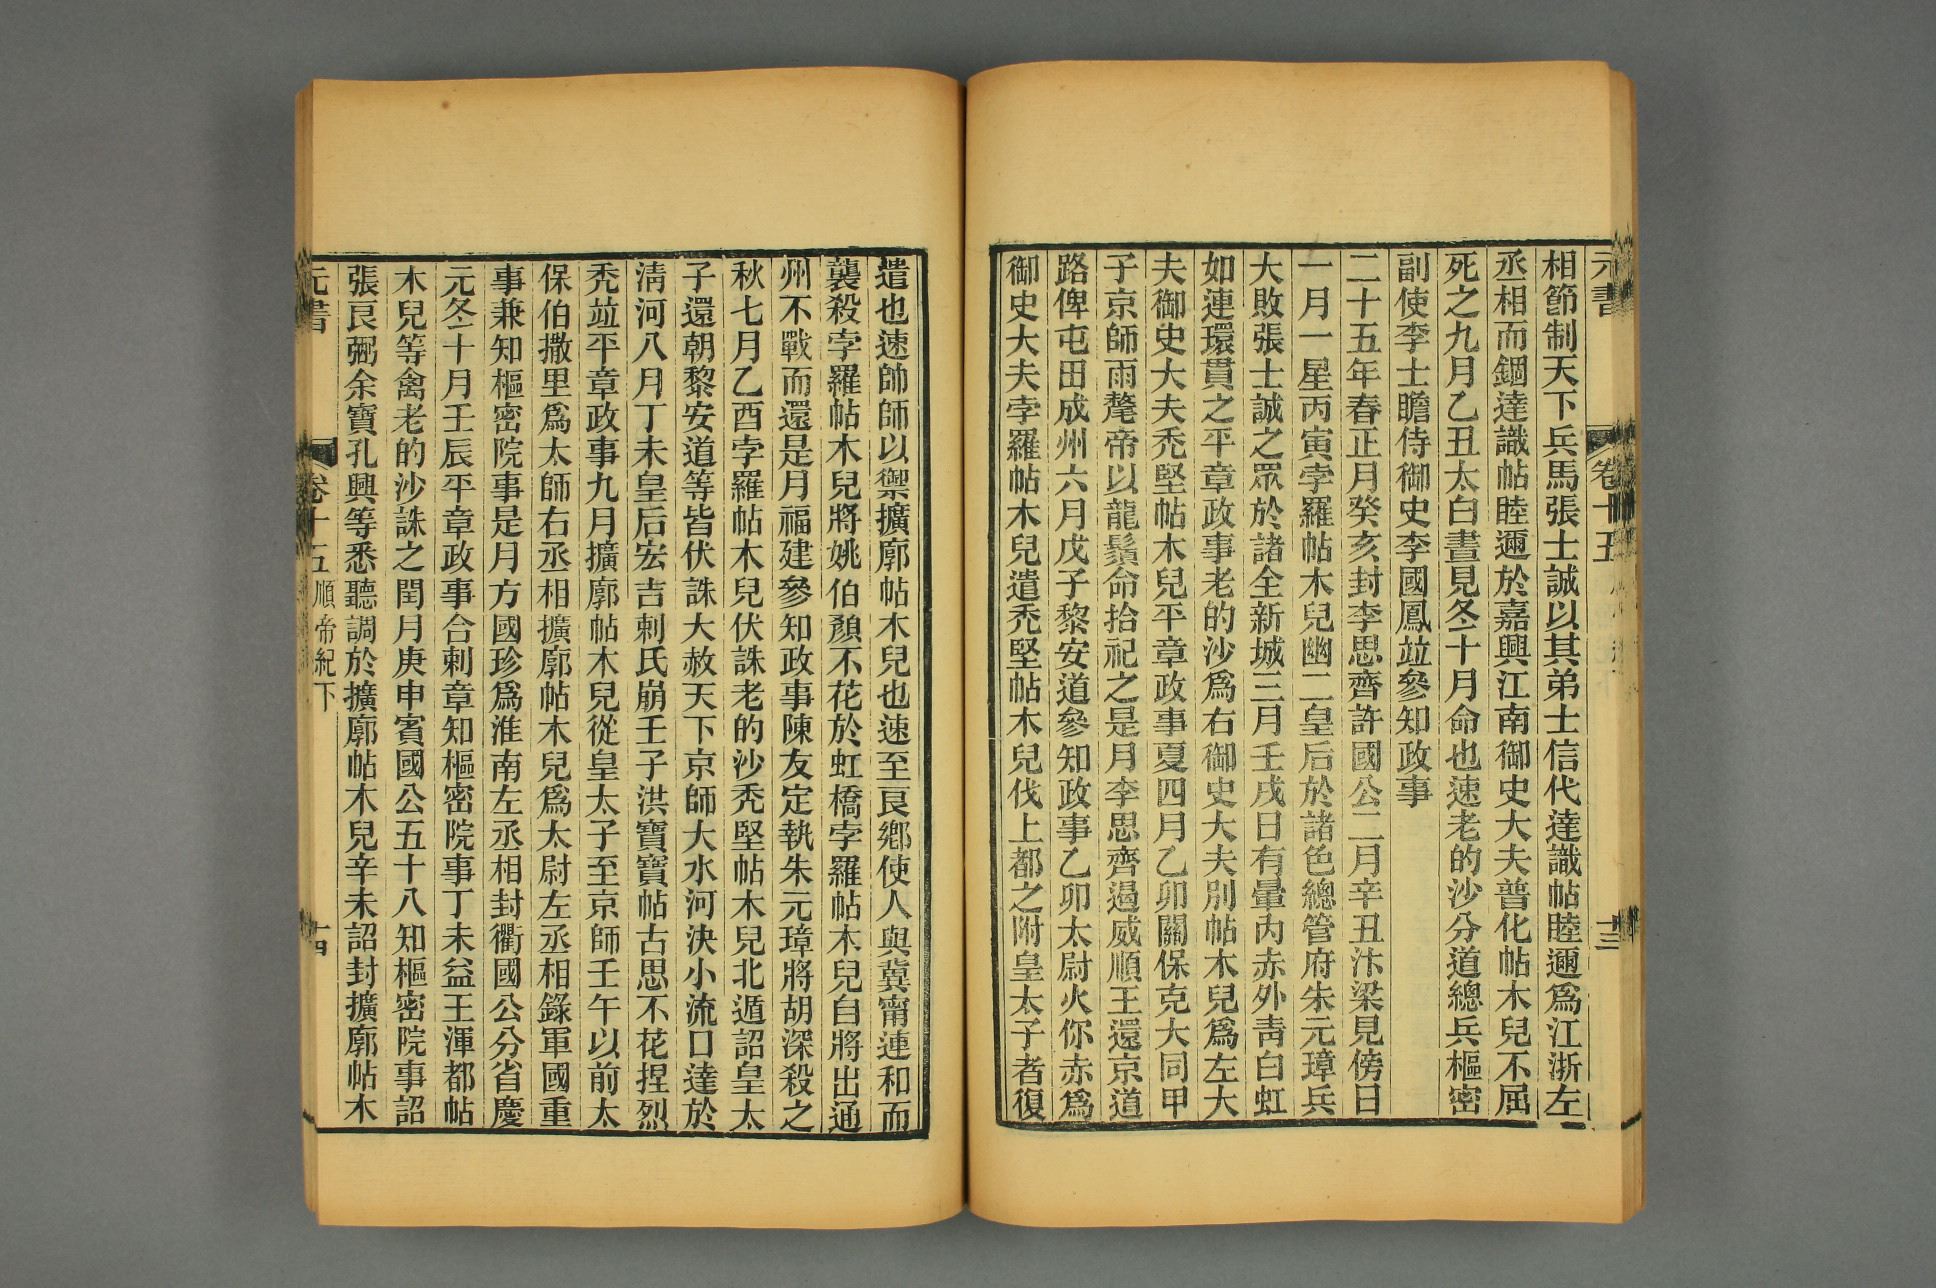 元書
卷十五
十三
相節制天下兵馬張士誠以其弟士信代達識帖睦邇爲江浙左
丞相而錮達識帖睦邇於嘉興江南御史大夫普化帖木兒不屈
死之九月乙丑太白晝見冬十月命也速老的沙分道總兵樞密
副使李士瞻侍御史李國鳳竝參知政事
二十五年春正月癸亥封李思齊許國公二月辛丑汴梁見傍日
一月一星丙寅孛羅帖木兒幽二皇后於諸色總管府朱元璋兵
大敗張士誠之眾於諸全新城三月壬戌日有暈內赤外靑白虹
如連環貫之平章政事老的沙爲右御史大夫別帖木兒爲左大
夫御史大夫禿堅帖木兒平章政事夏四月乙卯關保克大同甲
子京師雨氂帝以龍鬚命拾祀之是月李思齊遏威順王還京道
路俾屯田成州六月戊子黎安道參知政事乙卯太尉火你赤爲
御史大夫孛羅帖木兒遣禿堅帖木兒伐上都之附皇太子者復
遣也速帥師以禦擴廓帖木兒也速至良鄕使人與冀甯連和而
襲殺孛羅帖木兒將姚伯顏不花於虹橋孛羅帖木兒自將出通
州不戰而還是月福建參知政事陳友定執朱元璋將胡深殺之
秋七月乙酉孛羅帖木兒伏誅老的沙禿堅帖木兒北遁詔皇太
子還朝黎安道等皆伏誅大赦天下京師大水河決小流口達於
淸河八月丁未皇后宏吉剌氏崩壬子洪寶寶帖古思不花捏烈
禿竝平章政事九月擴廓帖木兒從皇太子至京師壬午以前太
保伯撒里爲太師右丞相擴廓帖木兒爲太尉左丞相錄軍國重
事兼知樞密院事是月方國珍爲淮南左丞相封衢國公分省慶
元冬十月壬辰平章政事合剌章知樞密院事丁未益王渾都帖
木兒等禽老的沙誅之閏月庚申賓國公五十八知樞密院事詔
張良弼余寶孔興等悉聽調於擴廓帖木兒辛未詔封擴廓帖木
元書
卷十五 順帝紀下
十四